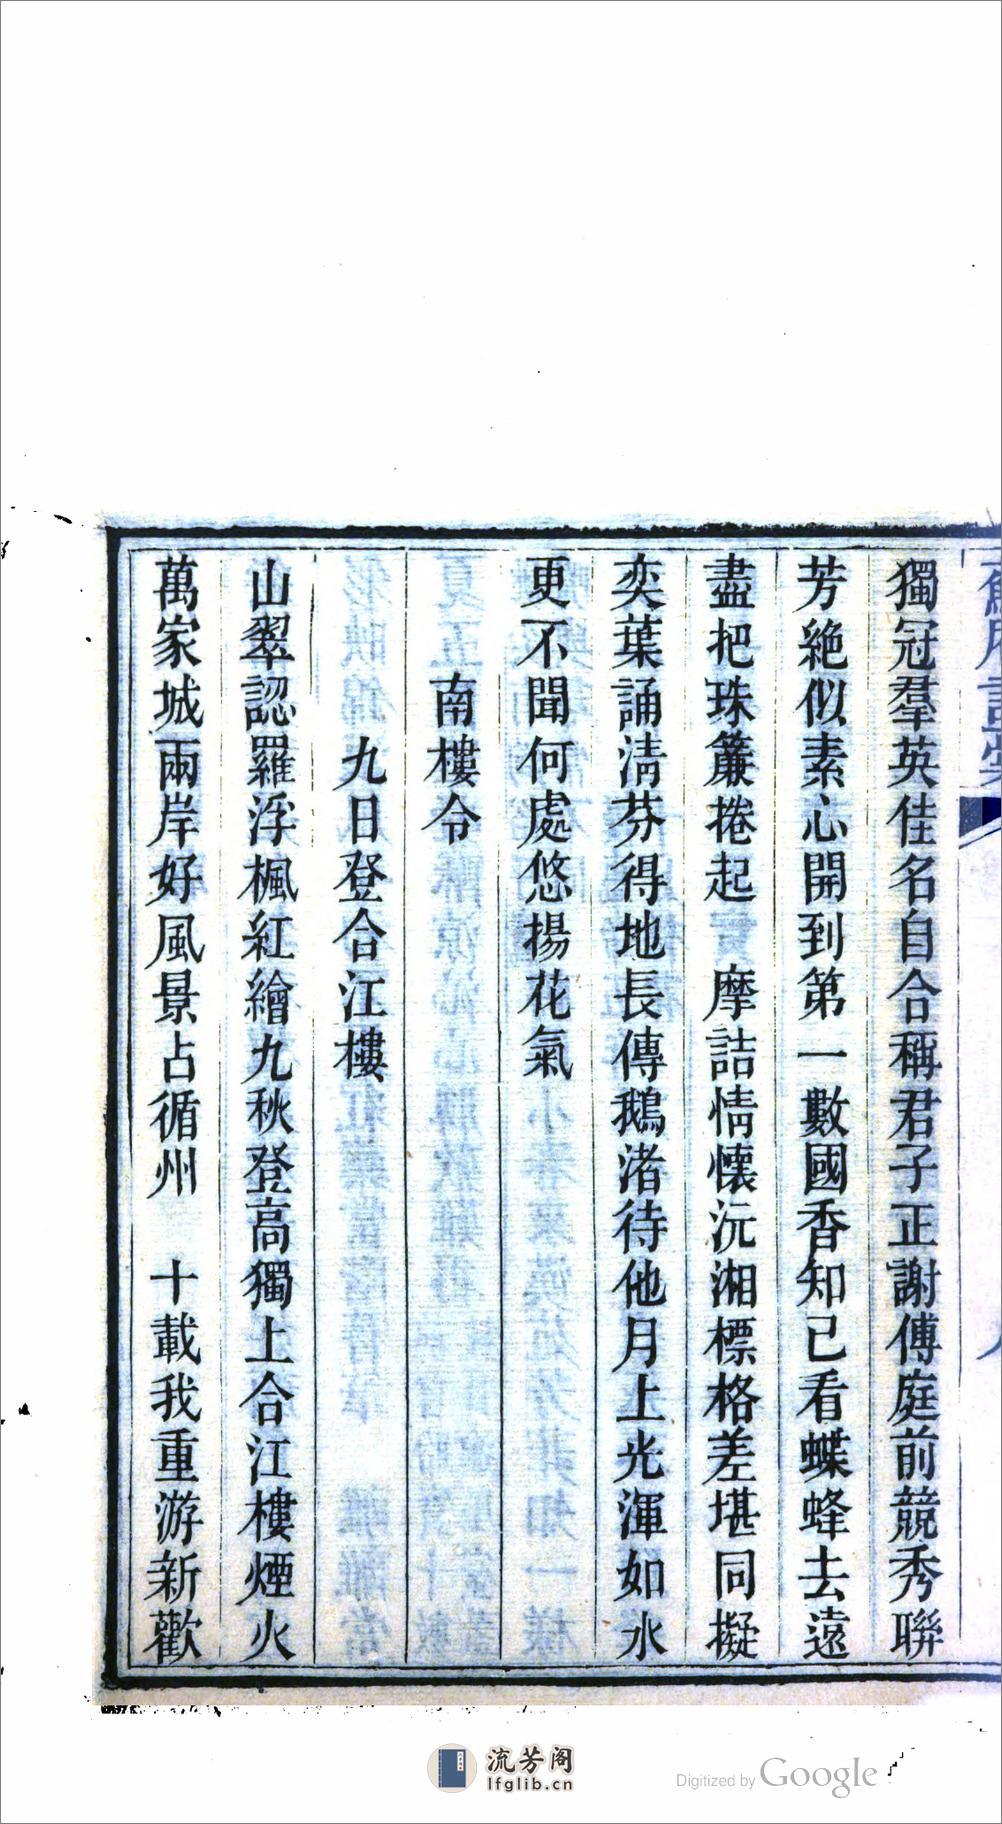 獨冠羣英佳名自合稱君子正謝傅庭前競秀聯
芳絕似素心開到第一數國香知已看蝶蜂去遠
盡把珠簾捲起　摩詰情懷沅湘標格差堪同擬
奕葉誦淸芬得地長傳鵝渚待他月上光渾如水
更不聞何處悠揚花氣
南樓令
九日登合江樓
山翠認羅浮楓紅繪九秋登高獨上合江樓煙火
萬家城兩岸好風景占循州　十載我重游新歡
流芳阁
lfglib.cn
Digitized by Google